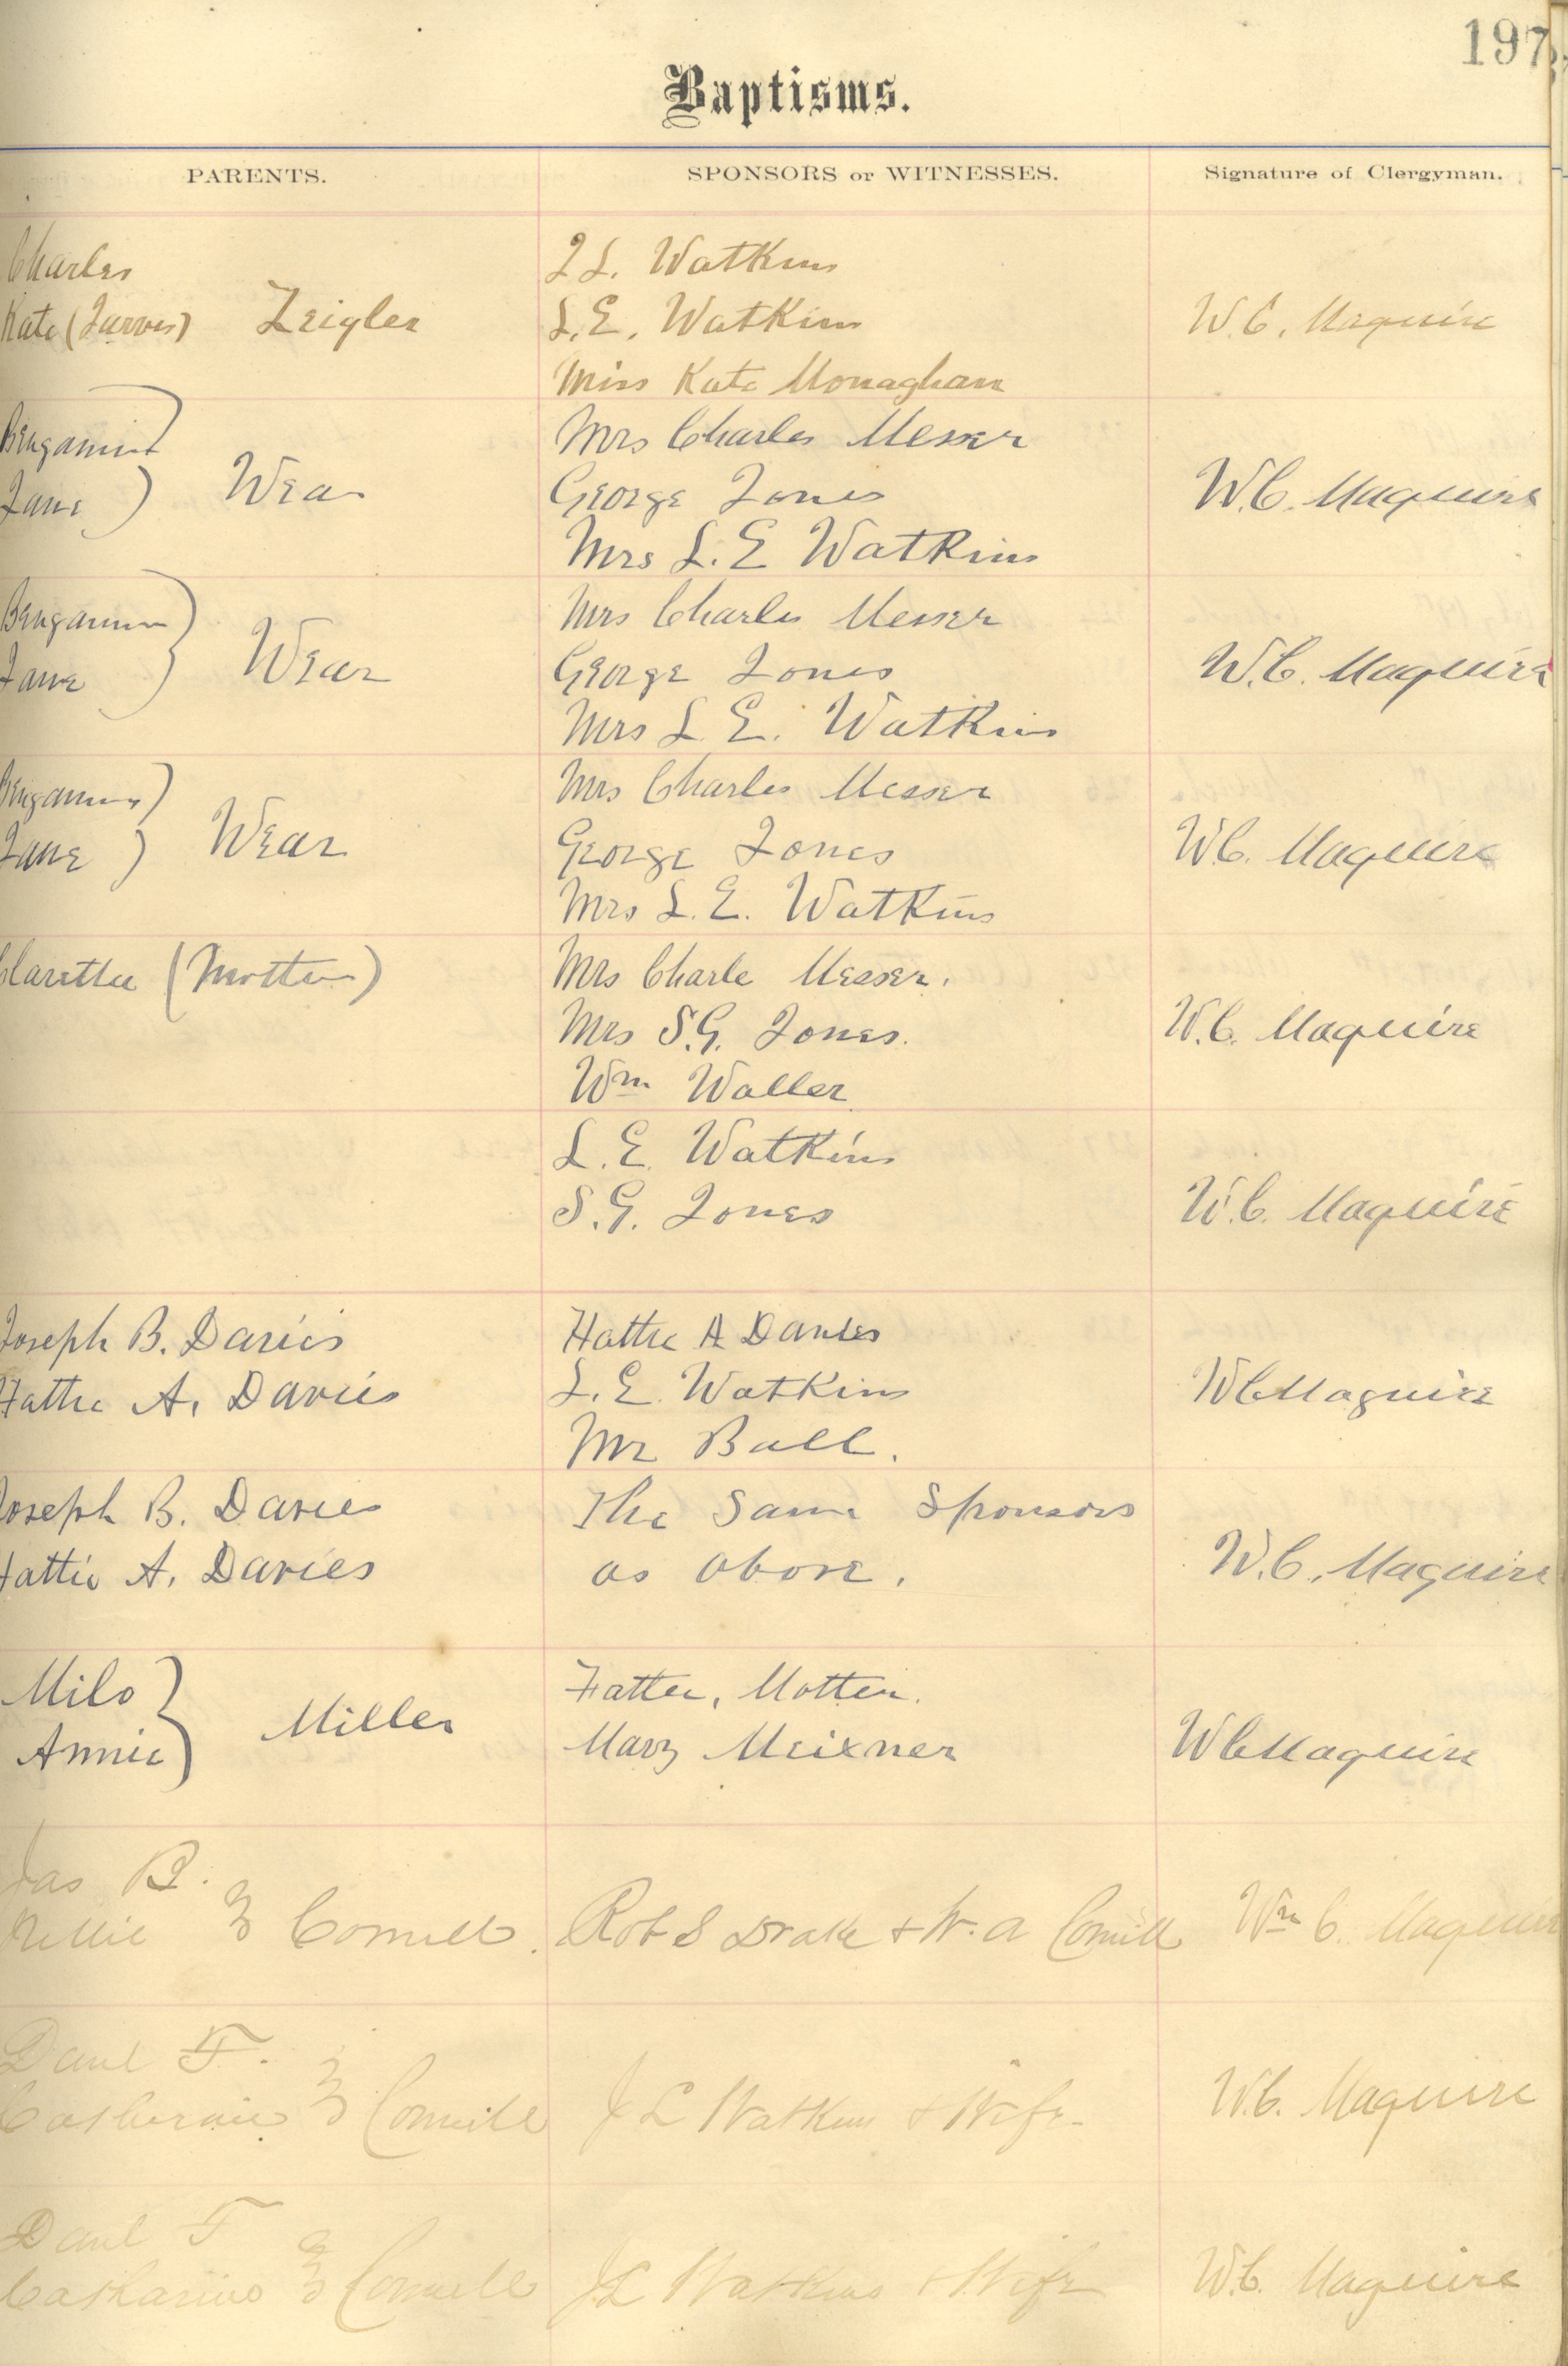 197
Baptisms.
PARENTS. SPONSORS or WITNESSES. Signature of Clergyman.
Charles
Kate (Jarvis) Zeigler
J L. Watkins
L. E. Watkins
Miss Kate Monaghan
W. C. Maguire
Bengamin
Jane) Wear
Mrs Charles Messer
George Jones
Mrs L. E Watkins
W. C. Maguire
Bengamin
Jane) Wear
Mrs Charles Messer
George Jones
Mrs L E. Watkins
W. C. Maguire
Bengamin)
Jane) Wear
Mrs Charles Messer
George Jones
Mrs L. E. Watkins
W C. Maguire
(Mother)
Mrs Charle Messer.
Mrs S. G. Jones.
Wm Waller
W. C. Maguire
L. E. Watkins
S. G. Jones
W. C. Maguire
Joseph B. Davies
Hattie A. Davies
Hattie A Davies
L. E. Watkins
Mr Ball.
W C Maguire
Joseph B. Davies
Hattie A. Davies
The Same Sponsors
as above.
W. C. Maguire
Milo
Annie} Miller
Father, Mother.
Mary Meixner
W C Maguire
Jas B.
Nellie } Cornell.
Rob S Drake + W. A Cornell
Wm C. Maguire
Danl F.
Catharine } Cornell
J L Watkins + Wife.
W. C. Maguire
Danl F
Catharine } Cornell
J L Watkins + Wife
W. C. Maguire